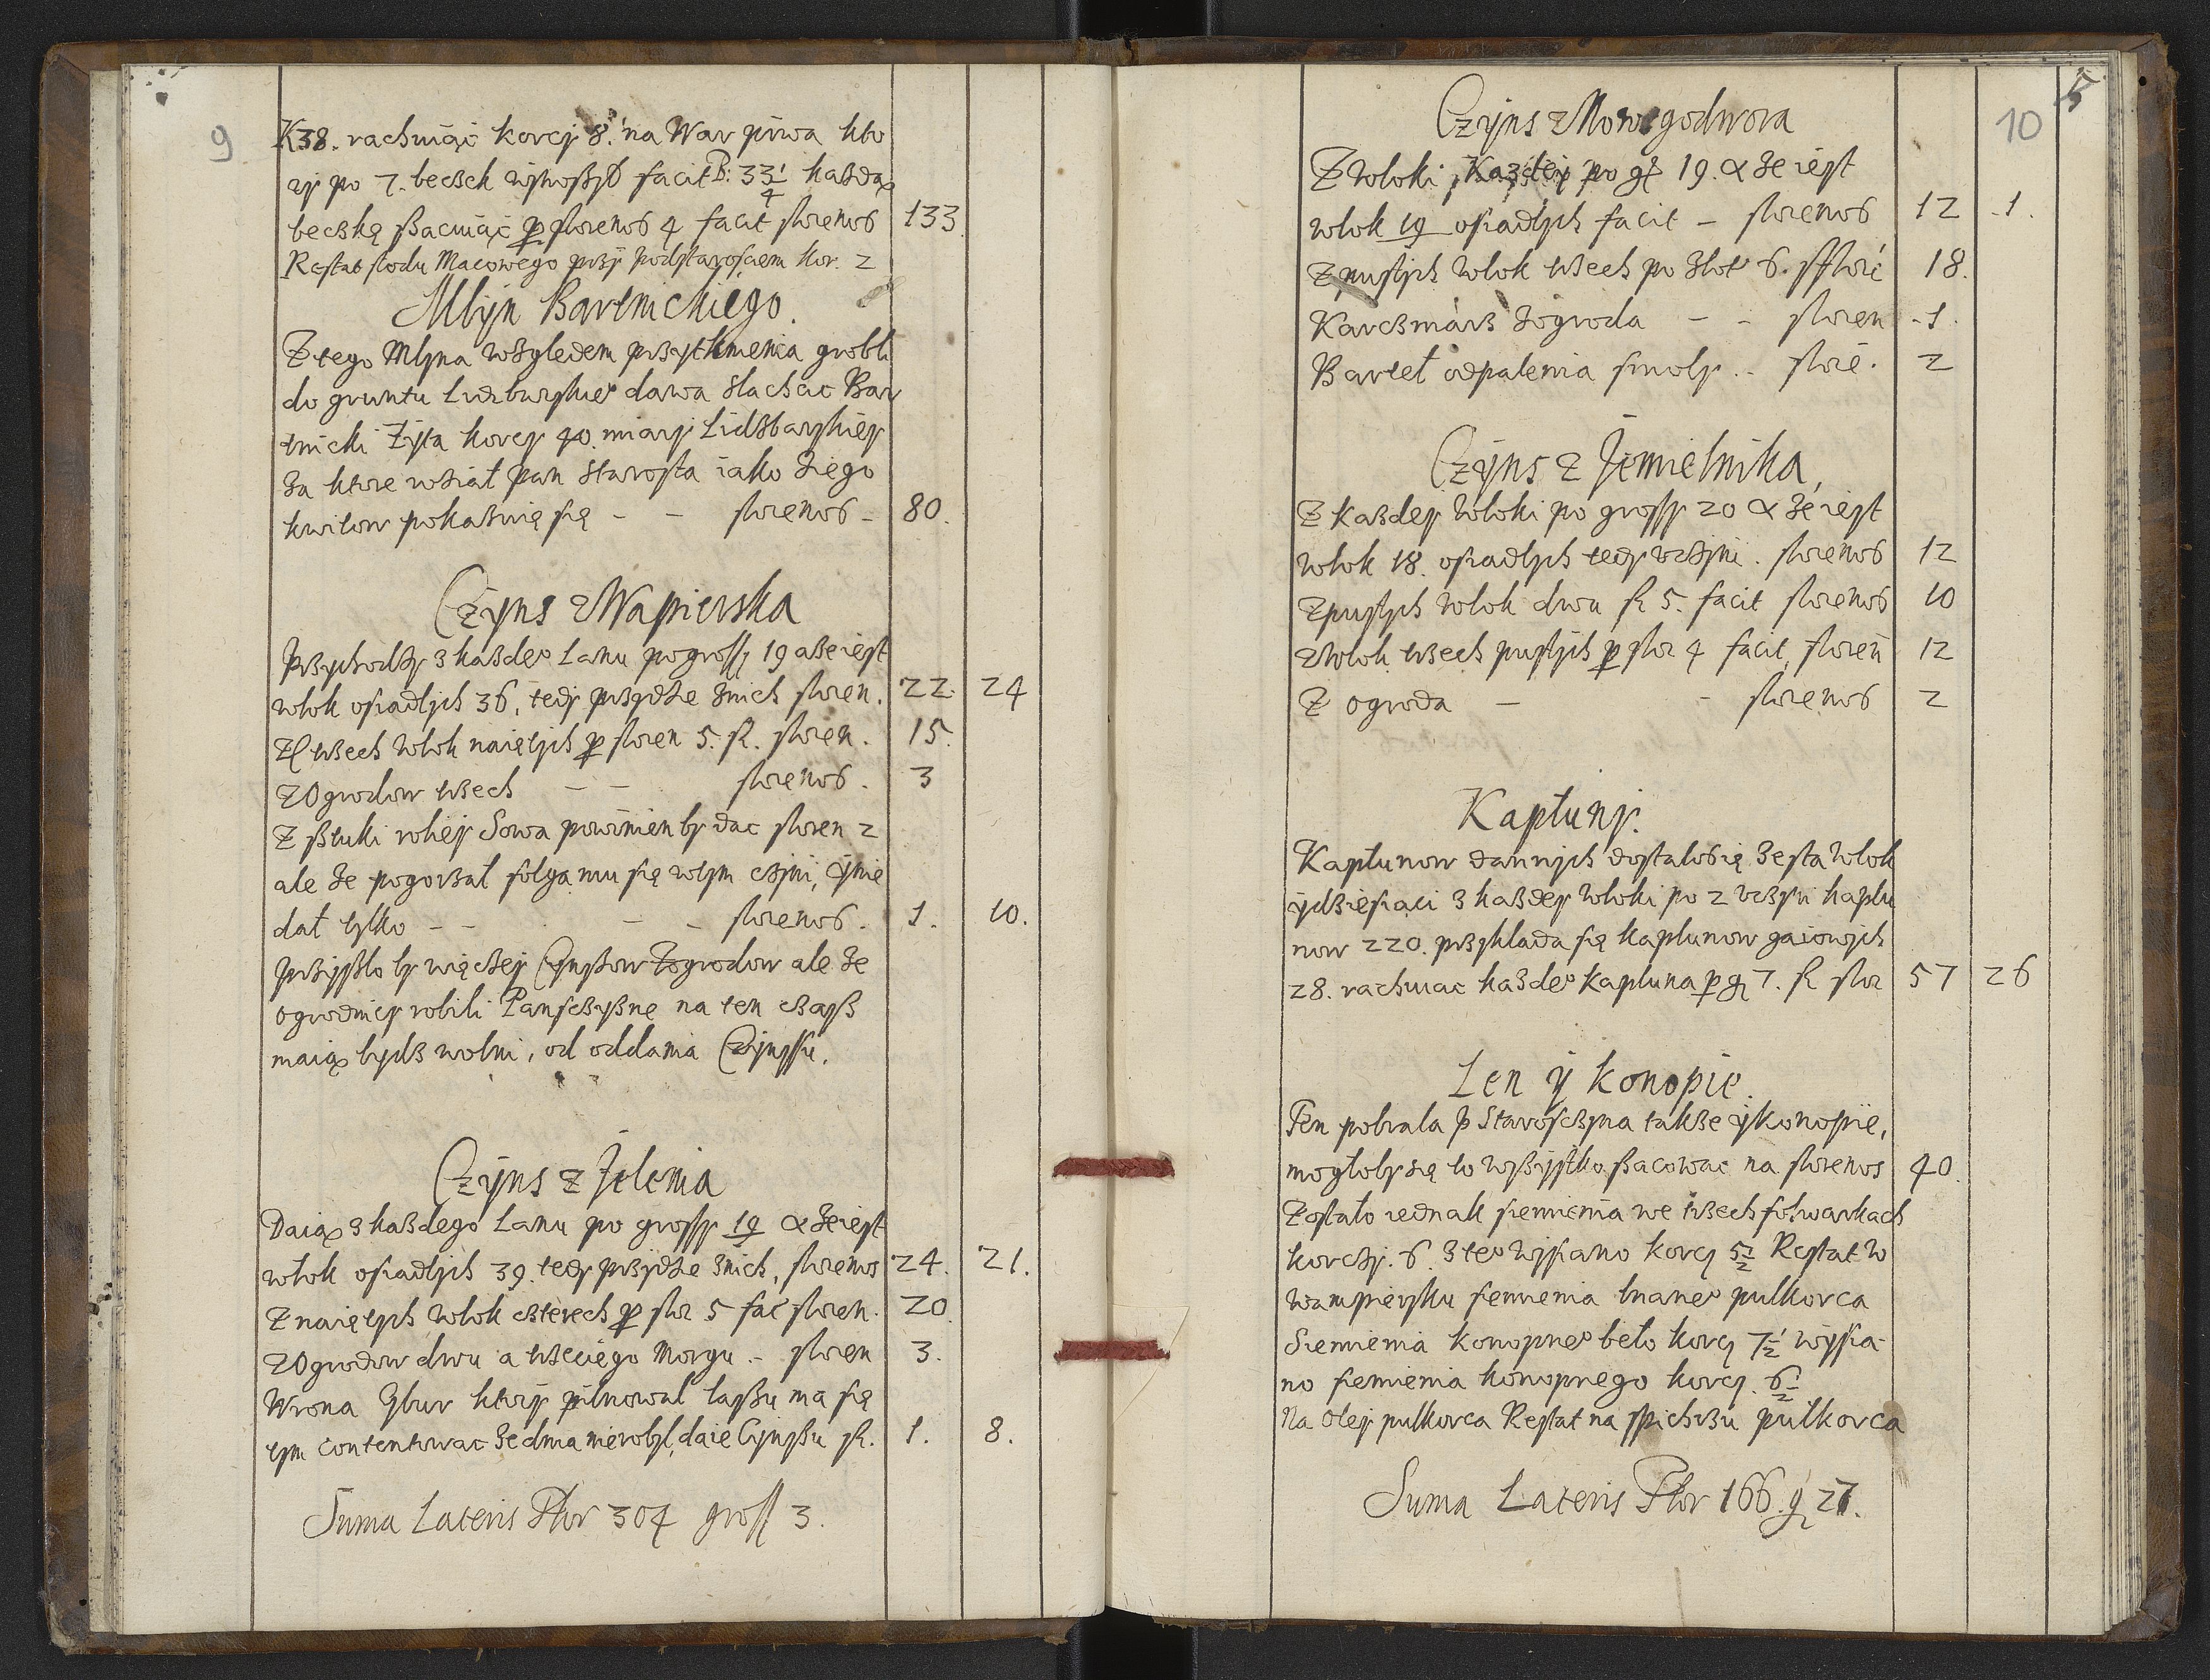 9
K38. rachuiąc korcy 8. na War piwa kto
ry po 7. beczek wynoszył facit B: 33 1/4 każdą
beczkę szacuiąc per florenos 4 facit florenos 133
Restat słodu Macowego przy podstarościem kor. 2
Młyn Bartnickiego.
Z tego Młyna wzgledem przytknienia grobli
do gruntu Lidzburskieo dawa Slachac Bar
tnicki Zyta korcy 40. miary Lidzbarskiey
Za ktore wział Pan Starosta iako z iego
kwitow pokazuię się - - florenos - 80.
Czyns z Wapierska
Przychodzy z kazdeo Lanu po grossy 19 a ze iest
włok osiadłych 36, tedy przydze z nich floren. 22. 24
Z trzech Włok naiętych per floren 5. fl. floren. 15.
z Ogrodow trzech - - florenos. 3
Z sztuki roliey Sowa powinien by dac floren 2
ale ze pogorzał folga mu się w tym czyni, y nie
dał tylko - - - - florenos. 1. 10.
Przyszło by więczey Czynszow Zogrodow ale ze
ogrodnicy robili Panszczyznę na ten czass
maią bydz wolni, od oddania Czynssu.
Czyns z Jelenia
Daią z kazdego Lanu po grossy 19 a ze iest
włok osiadłych 39. tedy przydze z nich, florenos 24. 21.
Z naiętych Włok czterech per flor 5 fac floren. 20.
z Ogrodow dwu a trzeciego Morgu - floren 3.
Wrona Gbur ktory pilnował lassu ma się
tym contentowac ze dnia nie robył, daie Czynszu fl. 1. 8.
Suma Lateris Flor 304 gross 3.
10
5
Czyns z Nowegodwora
Z Włoki Kazdey po gr 19. a ze iest
włok 19 osiadłych facit - florenos 12 1.
Z pustych Włok trzech po złot 6. fflore 18.
Karczmarz Zogroda - - floren 1.
Bartel od palenia smoły - flore. 2
Czyns z Jemielnika,
Z Kazdey Włoki po grossy 20 a ze iest
włok 18. osiadłych tedy vczyni. florenos 12
z pustych Włok dwu fl 5. facit florenos 10
z Włok trzech pustych per flor 4 facit, floren 12
Z ogroda - - florenos 2
Kapłuny.
Kapłunow dannych dostało się Ze sta Włok
y dziesiąci z kazdey Włoki po 2 vczyni kapłu
now 220. przykłada się kapłunow gaiowych
28. rachuiac kazdeo kapłuna per gr 7. fl flor 57 26
Len y konopie.
Len pobrała P Starościna takze y konopie,
mogłoby się to wszystko szacowac na florenos 40.
Zostało iednak siemienia we trzech folwarkach
korczy. 6. z teo wysiano korcy 5 1/2 Restat w
Wampiersku siemienia lnaneo pulkorca
Siemienia konopneo beło korcy 7 1/2 wysia-
no siemienia konopnego korcy. 6 1/2
Na Oley pulkorca Restat na spichrzu pulkorca
Suma Lateris Flor 166. gr 27.